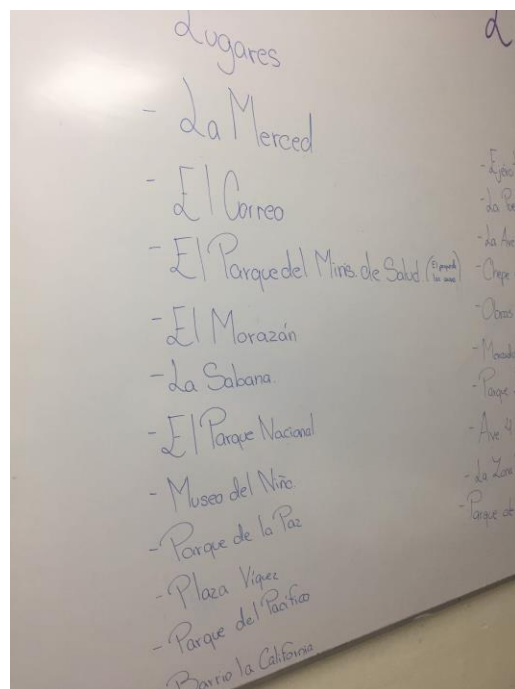 Lugares
- La Merced
- El Correo
- El Parque del Minis. de Salud (El parque
- El Morazán
- La Sabana.
- El Parque Nacional
- Museo del Niño.
- Parque de la Paz
- Plaza Víquez
- Parque del Pacífico
- Barrio la California
L
- La
- La Ave
- Chepe
- Obras
- Parque
- Ave 4
- La Zona
- Parque de